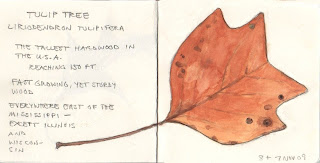 TULIP TREE
LIRIODENDRON TULIPIFERA
THE TALLEST HARDWOOD IN
THE U.S.A.
REACHING 150 FT
FAST GROWING, YET STURDY
WOOD
EVERYWHERE EAST OF THE
MISSISSIPPI —
EXCEPT ILLINOIS
AND
WISCON-
SIN